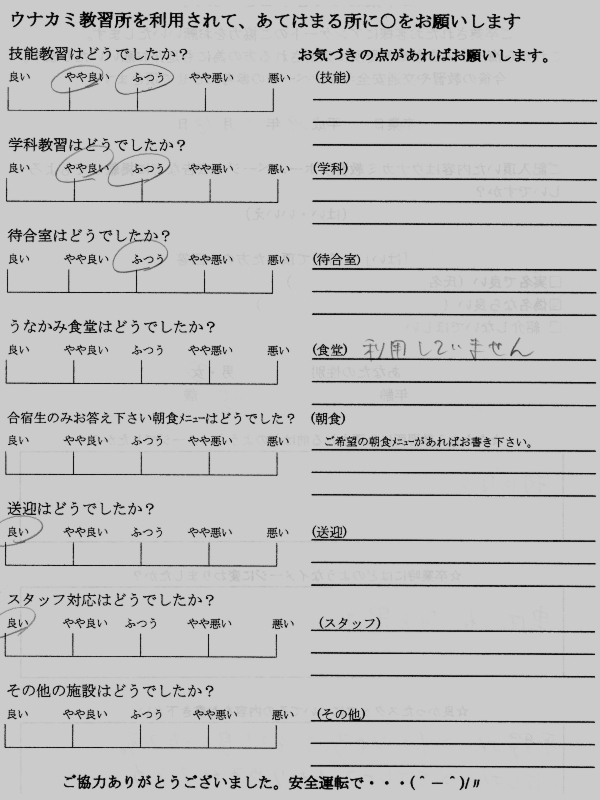 ウナカミ教習所を利用されて、あてはまる所に〇をお願いします
技能教習はどうでしたか？
お気づきの点があればお願いします。
良い やや良い ふつう やや悪い 悪い
(技能)
学科教習はどうでしたか？
良い やや良い ふつう やや悪い 悪い
(学科)
待合室はどうでしたか？
良い やや良い ふつう やや悪い 悪い
(待合室)
うなかみ食堂はどうでしたか？
良い やや良い ふつう やや悪い 悪い
(食堂) 利用していません
合宿生のみお答え下さい朝食ﾒﾆｭｰはどうでした？
(朝食)
良い やや良い ふつう やや悪い 悪い
ご希望の朝食ﾒﾆｭｰがあればお書き下さい。
送迎はどうでしたか？
良い やや良い ふつう やや悪い 悪い
(送迎)
スタッフ対応はどうでしたか？
良い やや良い ふつう やや悪い 悪い
(スタッフ)
その他の施設はどうでしたか？
良い やや良い ふつう やや悪い 悪い
(その他)
ご協力ありがとうございました。安全運転で・・・(＾－＾)/〃